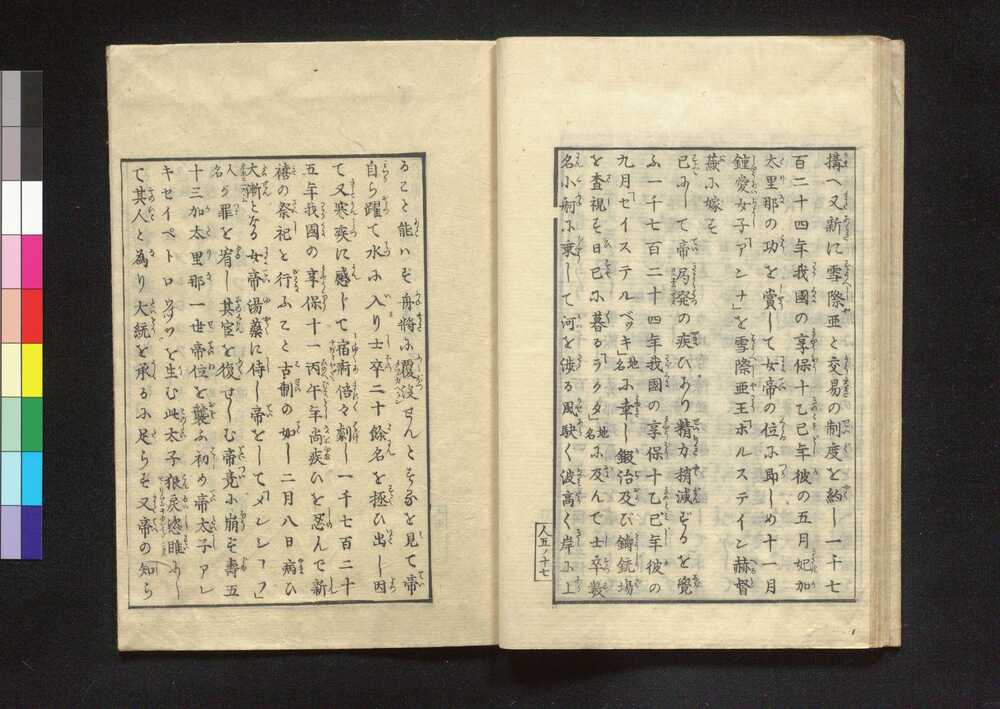 搆へ又新に雪際亜と交易の制度を約し一千七
百二十四年我國の享保十乙巳年彼の五月妃加
太里那の功を賞して女帝の位に即しめ十一月
鐘愛女子「アンナ」を雪際亜王「ホルステイン赫督
蕪に嫁す
已にして帝局発の疾ひあり精力稍減ずるを覺
ふ一千七百二十四年我國の享保十乙巳年彼の
九月「セイステルベッキ」地名に幸し鍛冶及び鑄銃場
を査視す日已に暮る「ラクタ」地名に及んで士卒數
名小舸に乗して河を渉る風駛く波高く岸に上
人五ノ十七
ること能はず舟將に覆没せんとするを見て帝
自ら躍て水に入り士卒二十餘名を拯ひ出し因
て又寒疾に感じて宿痾倍々劇し一千七百二十
五年我國の享保十一丙午年尚疾ひを忍んで新
禧の祭祀を行ふこと古制の如し二月八日病ひ
大漸となる女帝湯藥に侍し帝をして「メンシコフ」
人名が罪を宥し其官を復せしむ帝竟に崩ず壽五
十三加太里那一世帝位を襲ふ初め帝太子アレ
キセイペトロウヰッツを生む此太子狼戻恣睢にし
て其人と為り大統を承るに足らず又帝の知ら